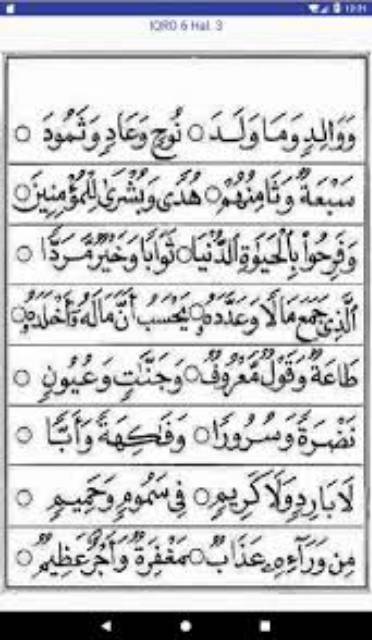 IQRO 6 Hal. 3
وَوَالِدٍ وَمَا وَلَدَ ○ نُوحٍ وَعَادٍ وَثَمُودَ ○
سَبْعَةٌ وَثَامِنُهُمْ ○ هُدًى وَبُشْرَىٰ لِلْمُؤْمِنِينَ
وَفَرِحُوا۟ بِالْحَيَوٰةِ الدُّنْيَا ○ ثَوَابًا وَخَيْرٌ مَّرَدًّا ○
الَّذِي جَمَعَ مَالًا وَعَدَّدَهُ ○ يَحْسَبُ أَنَّ مَالَهُ أَخْلَدَهُ ○
طَاعَةٌ وَقَوْلٌ مَّعْرُوفٌ ○ وَجَنَّٰتٍ وَعُيُونٍ ○
نَضْرَةً وَسُرُورًا ○ وَفَاكِهَةً وَأَبًّا ○
لَا بَارِدٍ وَلَا كَرِيمٍ ○ فِي سَمُومٍ وَحَمِيمٍ ○
مِن وَرَآءِهِ عَذَابٌ ○ مَغْفِرَةٌ وَأَجْرٌ عَظِيمٌ ○